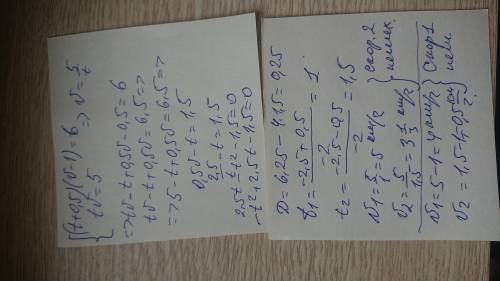 {(t+0,5)(v-1)=6
tv=5 => v=5/t
=>tv-t+0,5v-0,5=6
tv-t+0,5v=6,5=>
=>5-t+0,5v=6,5=>
0,5v-t=1,5
2,5/t-t=1,5
2,5-t²-1,5t=0
D=6,25-4·1,5=0,25
t1=(-2,5+0,5)/-2=1
t2=(-2,5-0,5)/-2=1,5
v1=5/1=5 км/ч } скор. 2
v2=5/1,5=3 1/3 км/ч } пешех.
v1=5-1=4 км/ч } скор 1
v2=1,5-1=0,5 км/ч } пеш